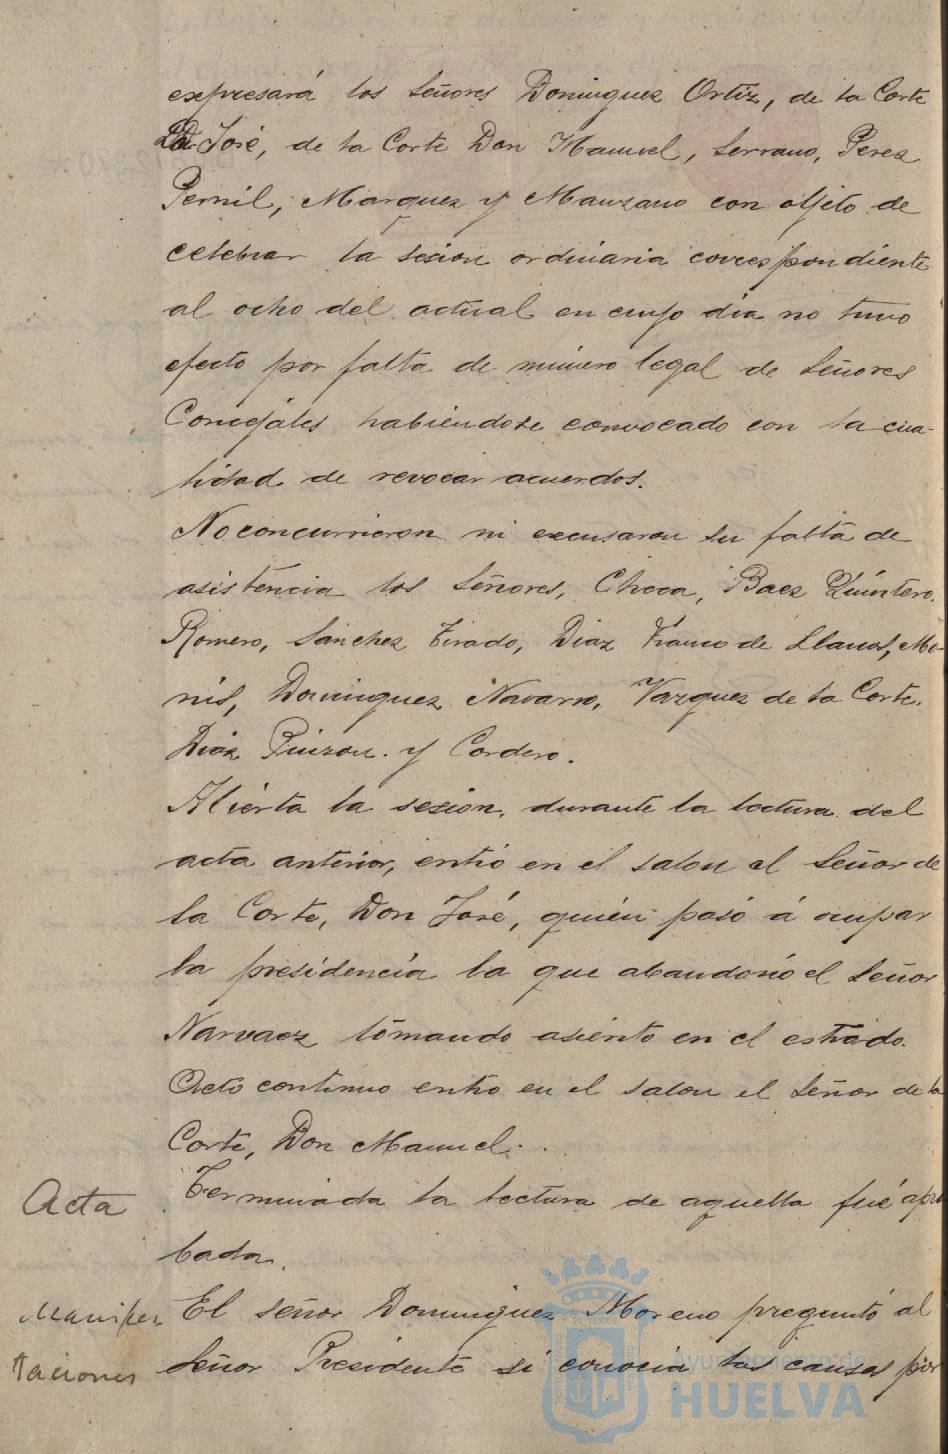 expresará los Señores Dominguez Ortiz, de la Corte
Don José, de la Corte Don Manuel, Serrano, Perez
Pernil, Marquez y Manzano con objeto de
celebrar la sesion ordinaria correspondiente
al ocho del actual en cuyo dia no tuvo
efecto por falta de número legal de Señores
Concejales habiendose convocado con la cua-
lidad de revocar acuerdos.
No concurrieron ni excusaron su falta de
asistencia los Señores, Checa, Baez Quintero,
Romero, Sánchez Tirado, Diaz Franco de Llanos, Mo-
nis, Dominguez Navarro, Vazquez de la Corte.
Diaz Pinzon. y Cordero.
Abierta la sesion, durante la lectura del
acta anterior, entró en el salon el Señor de
la Corte, Don José, quién pasó á ocupar
la presidencia la que abandonó el Señor
Narvaez tomando asiento en el estrado.
Acto continuo entró en el salon el Señor de la
Corte, Don Manuel.
Acta
Terminada la lectura de aquella fué apro
bada.
Manifes-
taciones
El señor Dominguez Moreno preguntó al
Señor Presidente si conocia las causas por
Ayuntamiento de
HUELVA